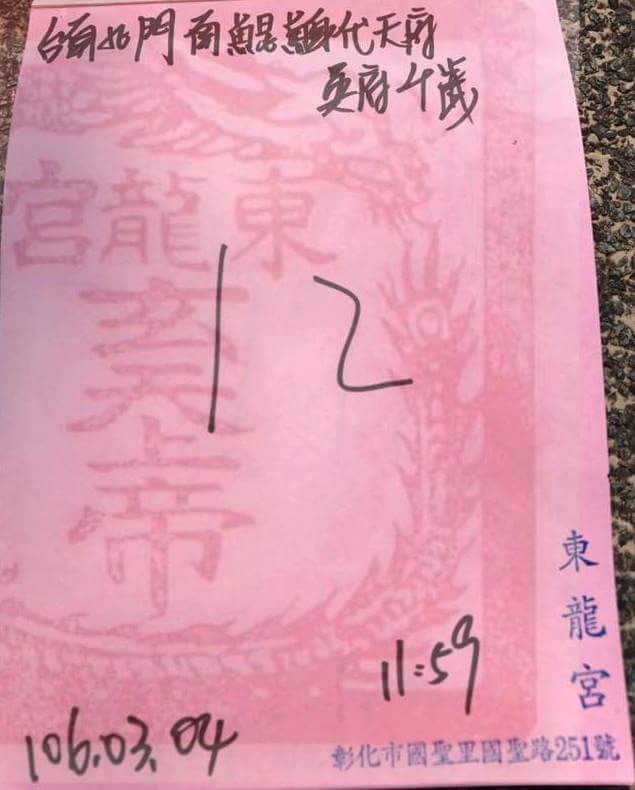 台南北門 南鯤鯓代天府
吳府千歲
東龍宮
玄天上帝
12
11:59
106.03.04
東龍宮
彰化市國聖里國聖路251號